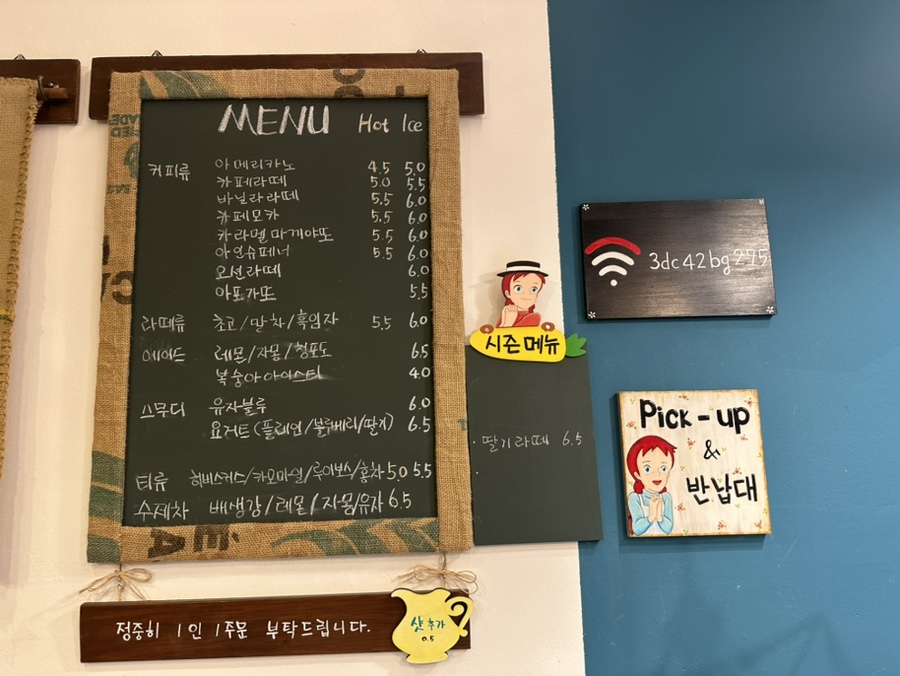 MENU Hot Ice
커피류 아메리카노 4.5 5.0
카페라떼 5.0 5.5
바닐라라떼 5.5 6.0
카페모카 5.5 6.0
카라멜마끼야또 5.5 6.0
아인슈페너 5.5 6.0
오션라떼 6.0
아포가또 5.5
라떼류 초코/말차/흑임자 5.5 6.0
에이드 레몬/자몽/청포도 6.5
복숭아아이스티 4.0
스무디 유자블루 6.0
요거트(플레인/블루베리/딸기) 6.5
티류 히비스커스/카모마일/루이보스/홍차 5.0 5.5
수제차 배생강/레몬/자몽/유자 6.5
시즌메뉴
딸기라떼 6.5
3dc42bg275
Pick-up
&
반납대
정중히 1인 1주문 부탁드립니다.
샷추가
0.5